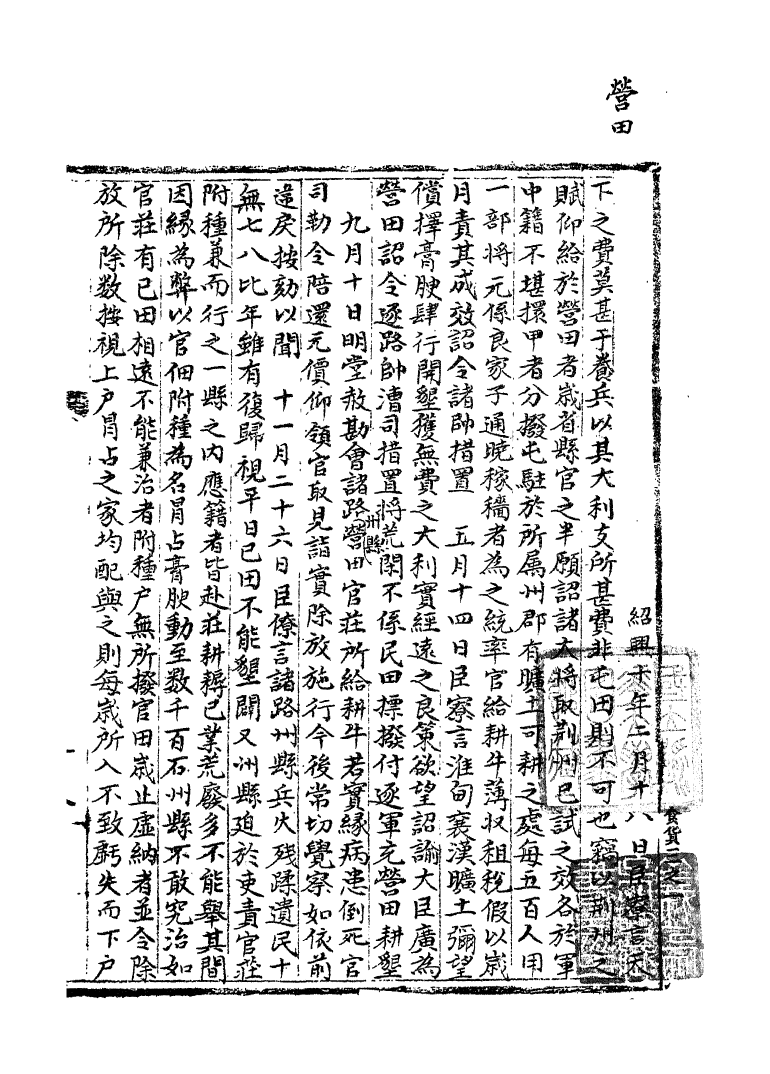 營田
紹興十年二月十八日臣寮言天
下之費莫甚于養兵以其大利支所甚費非屯田則不可也竊以荆州之
賦仰給於營田者歳省縣官之半願詔諸大將取荆州已試之效各於軍
中籍不堪擐甲者分撥屯駐於所属州郡有曠土可耕之處每五百人用
一部將元係良家子通曉稼穡者為之統率官給耕牛薄収租稅假以歳
月責其成效詔令諸帥措置　五月十四日臣寮言淮甸襄漢曠土彌望
償擇膏腴肆行開墾獲無費之大利實經遠之良策欲望詔諭大臣廣為
營田詔令逐路帥漕司措置將荒閑不係民田標撥付逐軍充營田耕墾
九月十日明堂赦勘會諸路州縣營田官莊所給耕牛若實緣病患倒死官
司勒令陪還元價仰領官取見詣實除放施行今後常切覺察如依前
違戾按劾以聞　十一月二十六日臣僚言諸路州縣兵火殘蹂遺民十
無七八比年雖有復歸視平日已田不能墾闢又州縣迫於吏責官莊
附種兼而行之一縣之内應籍者皆赴莊耕耨已業荒廢多不能舉其間
因緣為弊以官佃附種為名冒占膏腴動至数千百石州縣不敢究治如
官莊有已田相遠不能兼治者附種户無所撥官田歳止虚納者並令除
放所除数按視上户冒占之家均配與之則每歳所入不致虧失而下户
食貨三之一